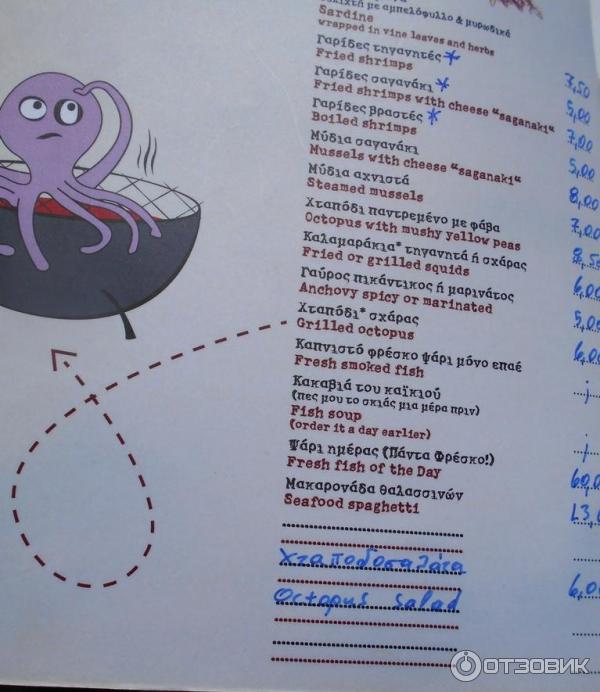 με αμπελόφυλλο & μυρωδικά
Sardine
wrapped in vine leaves and herbs
Γαρίδες τηγανητές *
Fried shrimps
3,50
Γαρίδες σαγανάκι *
Fried shrimps with cheese "saganaki"
5,00
Γαρίδες βραστές *
Boiled shrimps
7,00
Μύδια σαγανάκι
Mussels with cheese "saganaki"
5,00
Μύδια αχνιστά
Steamed mussels
8,00
Χταπόδι παντρεμένο με φάβα
Octopus with mushy yellow peas
7,00
Καλαμαράκια* τηγανητά ή σχάρας
Fried or grilled squids
8,50
Γαύρος πικάντικος ή μαρινάτος
Anchovy spicy or marinated
6,00
Χταπόδι* σχάρας
Grilled octopus
5,00
Καπνιστό φρέσκο ψάρι μόνο επαέ
Fresh smoked fish
6,0
Κακαβιά του καϊκιού
(πες μου το σκιάς μια μέρα πριν)
Fish soup
(order it a day earlier)
Ψάρι ημέρας (Πάντα Φρέσκο!)
Fresh fish of the Day
Μακαρονάδα θαλασσινών
Seafood spaghetti
Χταποδοσαλάτα
Octopus salad
6,0
ОТЗОВИК